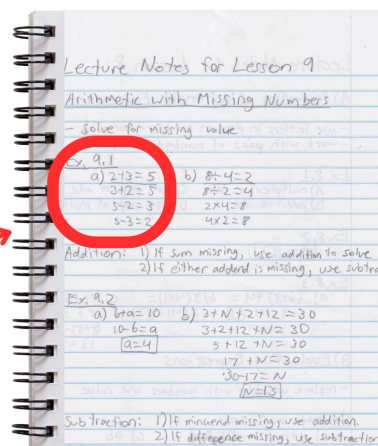 Lecture Notes for Lesson 9
Arithmetic with Missing Numbers
- solve for missing value
Ex. 9.1
a) 2+3=5 b) 8÷4=2
3+2=5 8÷2=4
5-2=3 2×4=8
5-3=2 4×2=8
Addition: 1) If sum missing, use addition to solve
2) If either addend is missing, use subtrac
Ex. 9.2
a) 6+a=10 b) 3+N+2+12=30
10-6=a 3+2+12+N=30
a=4 5+12+N=30
17+N=30
30-17=N
N=13
Subtraction: 1) If minuend missing, use addition.
2) If difference missing, use subtraction